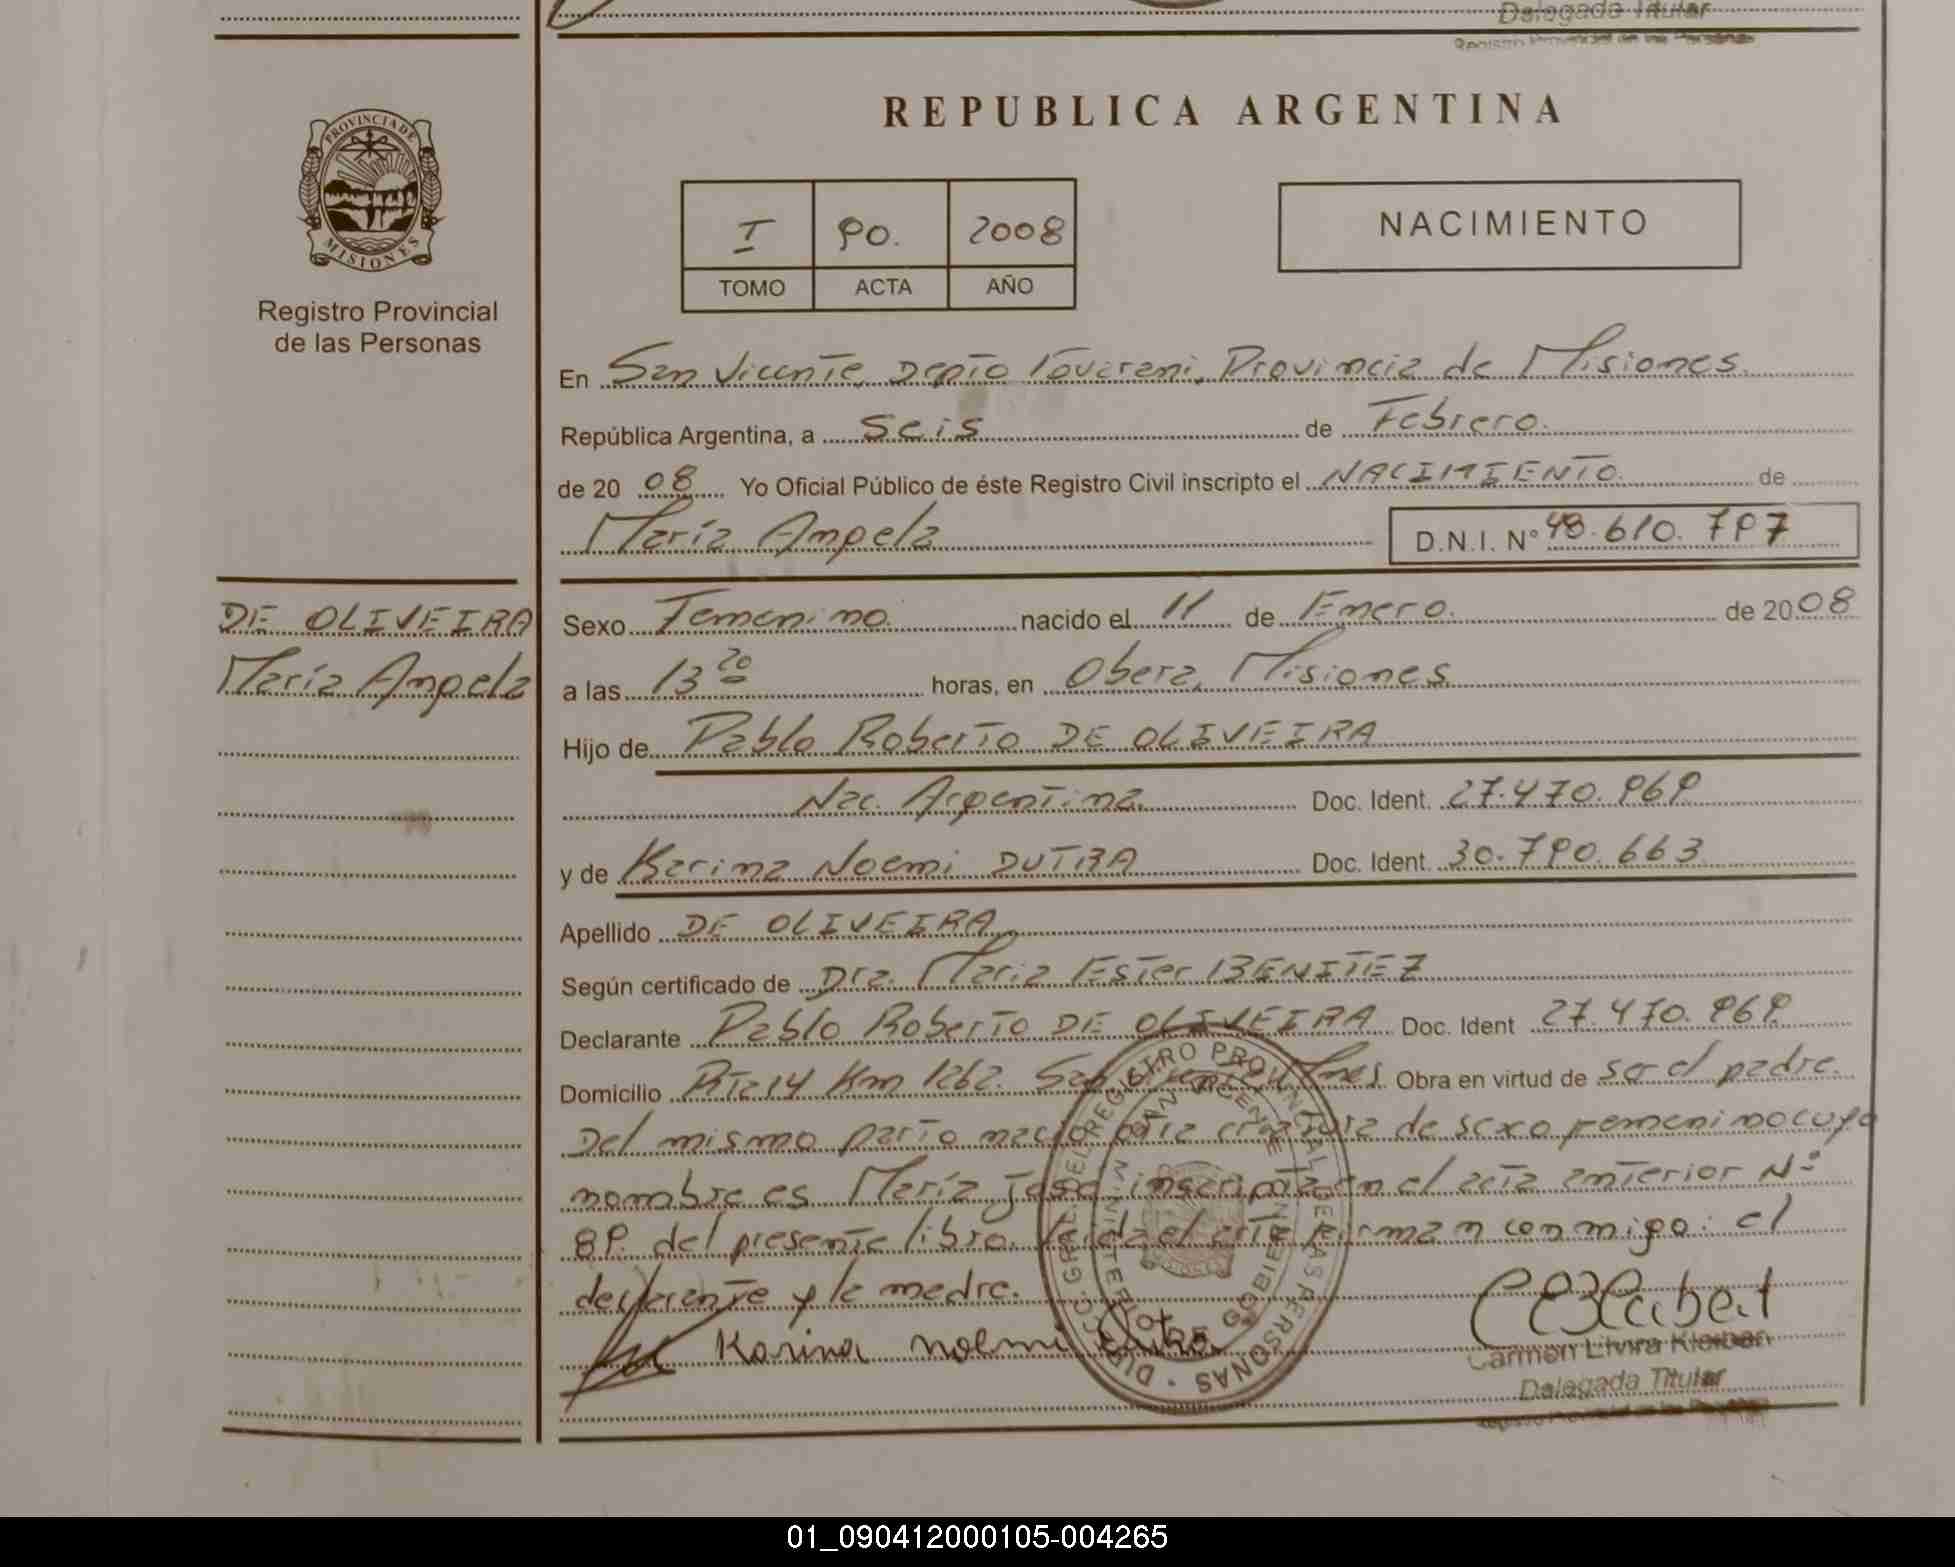 Delegada Titular
Registro Provincial de las Personas
PROVINCIA DE
MISIONES
Registro Provincial
de las Personas
REPUBLICA ARGENTINA
I 90. 2008
TOMO ACTA AÑO
NACIMIENTO
En San Vicente, Depto Guarani, Provincia de Misiones.
República Argentina, a seis de Febrero.
de 2008 Yo Oficial Público de éste Registro Civil inscripto el NACIMIENTO. de
María Angela D.N.I. Nº 48.610.797
DE OLIVEIRA
María Angela
Sexo Femenino. nacido el 11 de Enero. de 2008
a las 13 20 horas, en Obera, Misiones
Hijo de Pablo Roberto DE OLIVEIRA
Nac. Argentina Doc. Ident. 27.470.969
y de Karina Noemi DUTRA Doc. Ident. 30.790.663
Apellido DE OLIVEIRA
Según certificado de Dra. Maria Ester BENITEZ
Declarante Pablo Roberto DE OLIVEIRA Doc. Ident 27.470.969
Domicilio Rta 14 Km 1262. San Vicente, Mnes Obra en virtud de ser el padre.
Del mismo parto nacio otra criatura de sexo femenino cuyo
nombre es María José inscripta en el acta anterior Nº
89. del presente libro. Leida el acta firman conmigo: el
declarante y la madre.
Karina Noemi Dutra
Delegada Titular
01_090412000105-004265